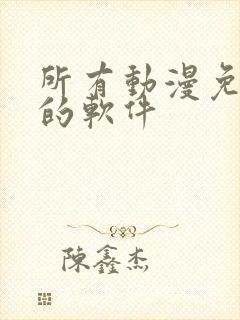 所有動漫免
的軟件
陳鑫杰